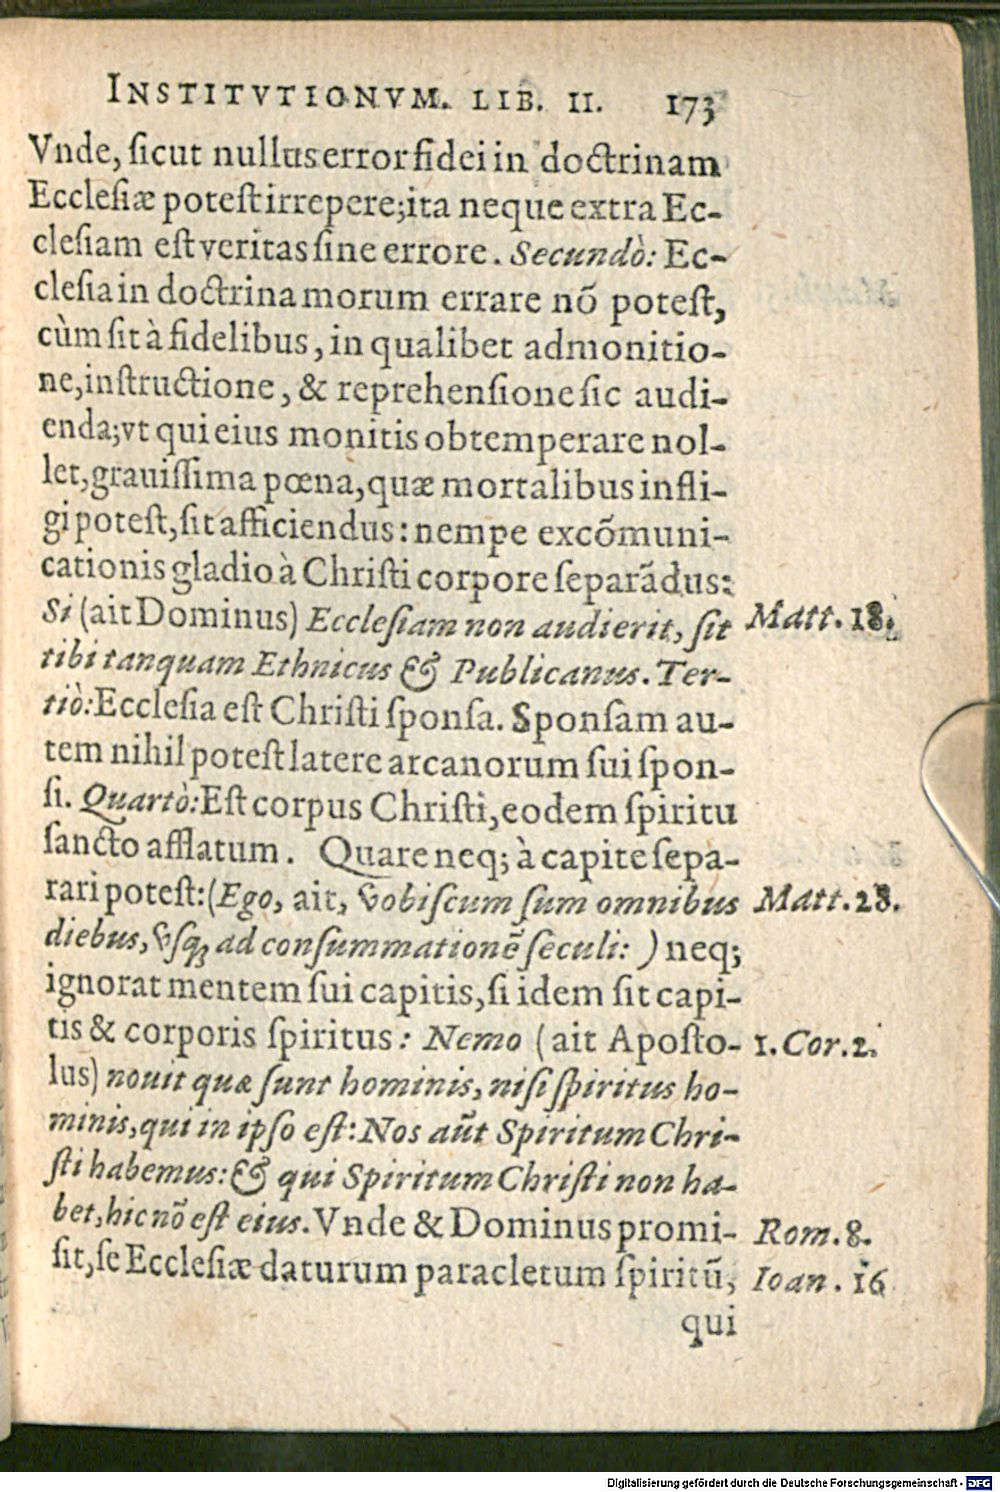 INSTITVTIONVM. LIB. II. 173
Vnde, ſicut nullus error fidei in doctrinam
Eccleſiæ poteſt irrepere; ita neque extra Ec-
cleſiam eſt veritas ſine errore. Secundò: Ec-
cleſia in doctrina morum errare nõ poteſt,
cùm ſit à fidelibus, in qualibet admonitio-
ne, inſtructione, & reprehenſione ſic audi-
enda; vt qui eius monitis obtemperare nol-
let, grauiſſima pœna, quæ mortalibus infli-
gi poteſt, ſit afficiendus: nempe excõmuni-
cationis gladio à Chriſti corpore ſeparãdus:
Si (ait Dominus) Eccleſiam non audierit, ſit Matt. 18.
tibi tanquam Ethnicus & Publicanus. Ter-
tiò: Eccleſia eſt Chriſti ſponſa. Sponſam au-
tem nihil poteſt latere arcanorum ſui ſpon-
ſi. Quartò: Eſt corpus Chriſti, eodem ſpiritu
ſancto afflatum. Quare neq; à capite ſepa-
rari poteſt: (Ego, ait, vobiſcum ſum omnibus Matt. 28.
diebus, vſq; ad conſummationẽ ſeculi: ) neq;
ignorat mentem ſui capitis, ſi idem ſit capi-
tis & corporis ſpiritus: Nemo (ait Apoſto- 1. Cor. 2.
lus) nouit quæ ſunt hominis, niſi ſpiritus ho-
minis, qui in ipſo eſt: Nos aũt Spiritum Chri-
ſti habemus: & qui Spiritum Chriſti non ha-
bet, hic nõ eſt eius. Vnde & Dominus promi- Rom. 8.
ſit, ſe Eccleſiæ daturum paracletum ſpiritũ, Ioan. 16
qui
Digitalisierung gefördert durch die Deutsche Forschungsgemeinschaft - DFG